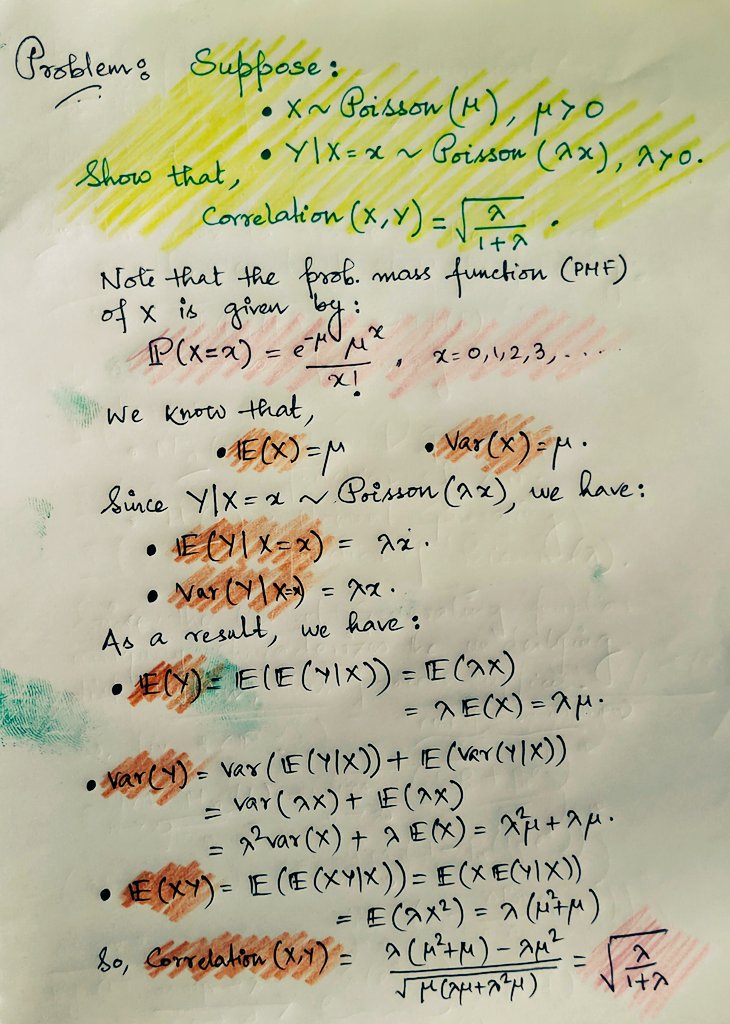 Problem: Suppose:
• X ~ Poisson (μ), μ > 0
• Y|X = x ~ Poisson (λx), λ > 0.
Show that,
Correlation (X, Y) = √(λ/(1+λ)).
Note that the prob. mass function (PMF)
of X is given by:
ℙ(X=x) = e^{-μ} μ^x / x! , x = 0, 1, 2, 3, ....
We know that,
• 𝔼(X) = μ • Var(X) = μ.
Since Y|X = x ~ Poisson (λx), we have:
• 𝔼(Y|X=x) = λx.
• Var(Y|X=x) = λx.
As a result, we have:
• 𝔼(Y) = 𝔼(𝔼(Y|X)) = 𝔼(λX)
= λ𝔼(X) = λμ.
• Var(Y) = Var(𝔼(Y|X)) + 𝔼(Var(Y|X))
= Var(λX) + 𝔼(λX)
= λ²Var(X) + λ𝔼(X) = λ²μ + λμ.
• 𝔼(XY) = 𝔼(𝔼(XY|X)) = 𝔼(X𝔼(Y|X))
= 𝔼(λX²) = λ(μ²+μ)
So, Correlation (X,Y) = (λ(μ²+μ) − λμ²) / √(μ(λμ+λ²μ)) = √(λ/(1+λ))